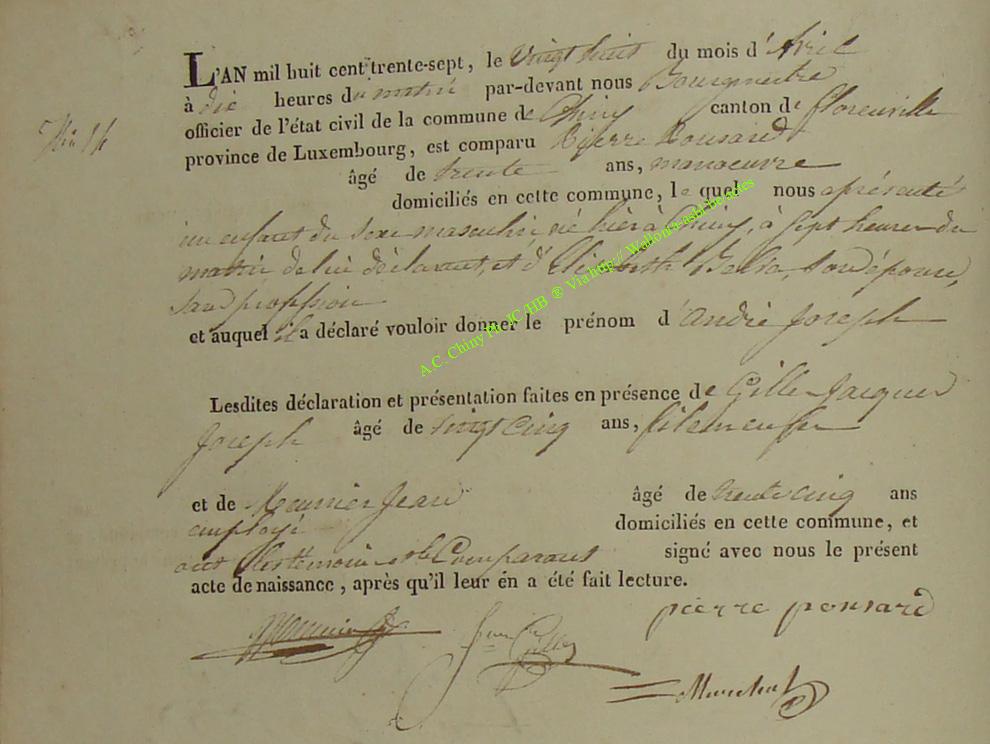 L'AN mil huit cent trente-sept, le vingt huit du mois d'Avril
à dix heures du matin par-devant nous Bourgmestre
officier de l'état civil de la commune de Chiny canton de florenville
province de Luxembourg, est comparu Pierre Ponsard
âgé de trente ans, manoeuvre
domiciliés en cette commune, lequel nous a présenté
un enfant du sexe masculin né hier à Chiny, à sept heures du
matin de lui déclarant, et d'Elisabeth son épouse,
sans profession
et auquel il a déclaré vouloir donner le prénom d'andré joseph
Lesdites déclaration et présentation faites en présence de Gilles Jacques
joseph âgé de vingt cinq ans,
et de Meunier Jean âgé de trente cinq ans
employé domiciliés en cette commune, et
ont les temoins et le Comparant signé avec nous le présent
acte de naissance, après qu'il leur en a été fait lecture.
pierre ponsard
A.C. Chiny Pt JC/HB ® Via http://Wallonia-asbl.be/actes